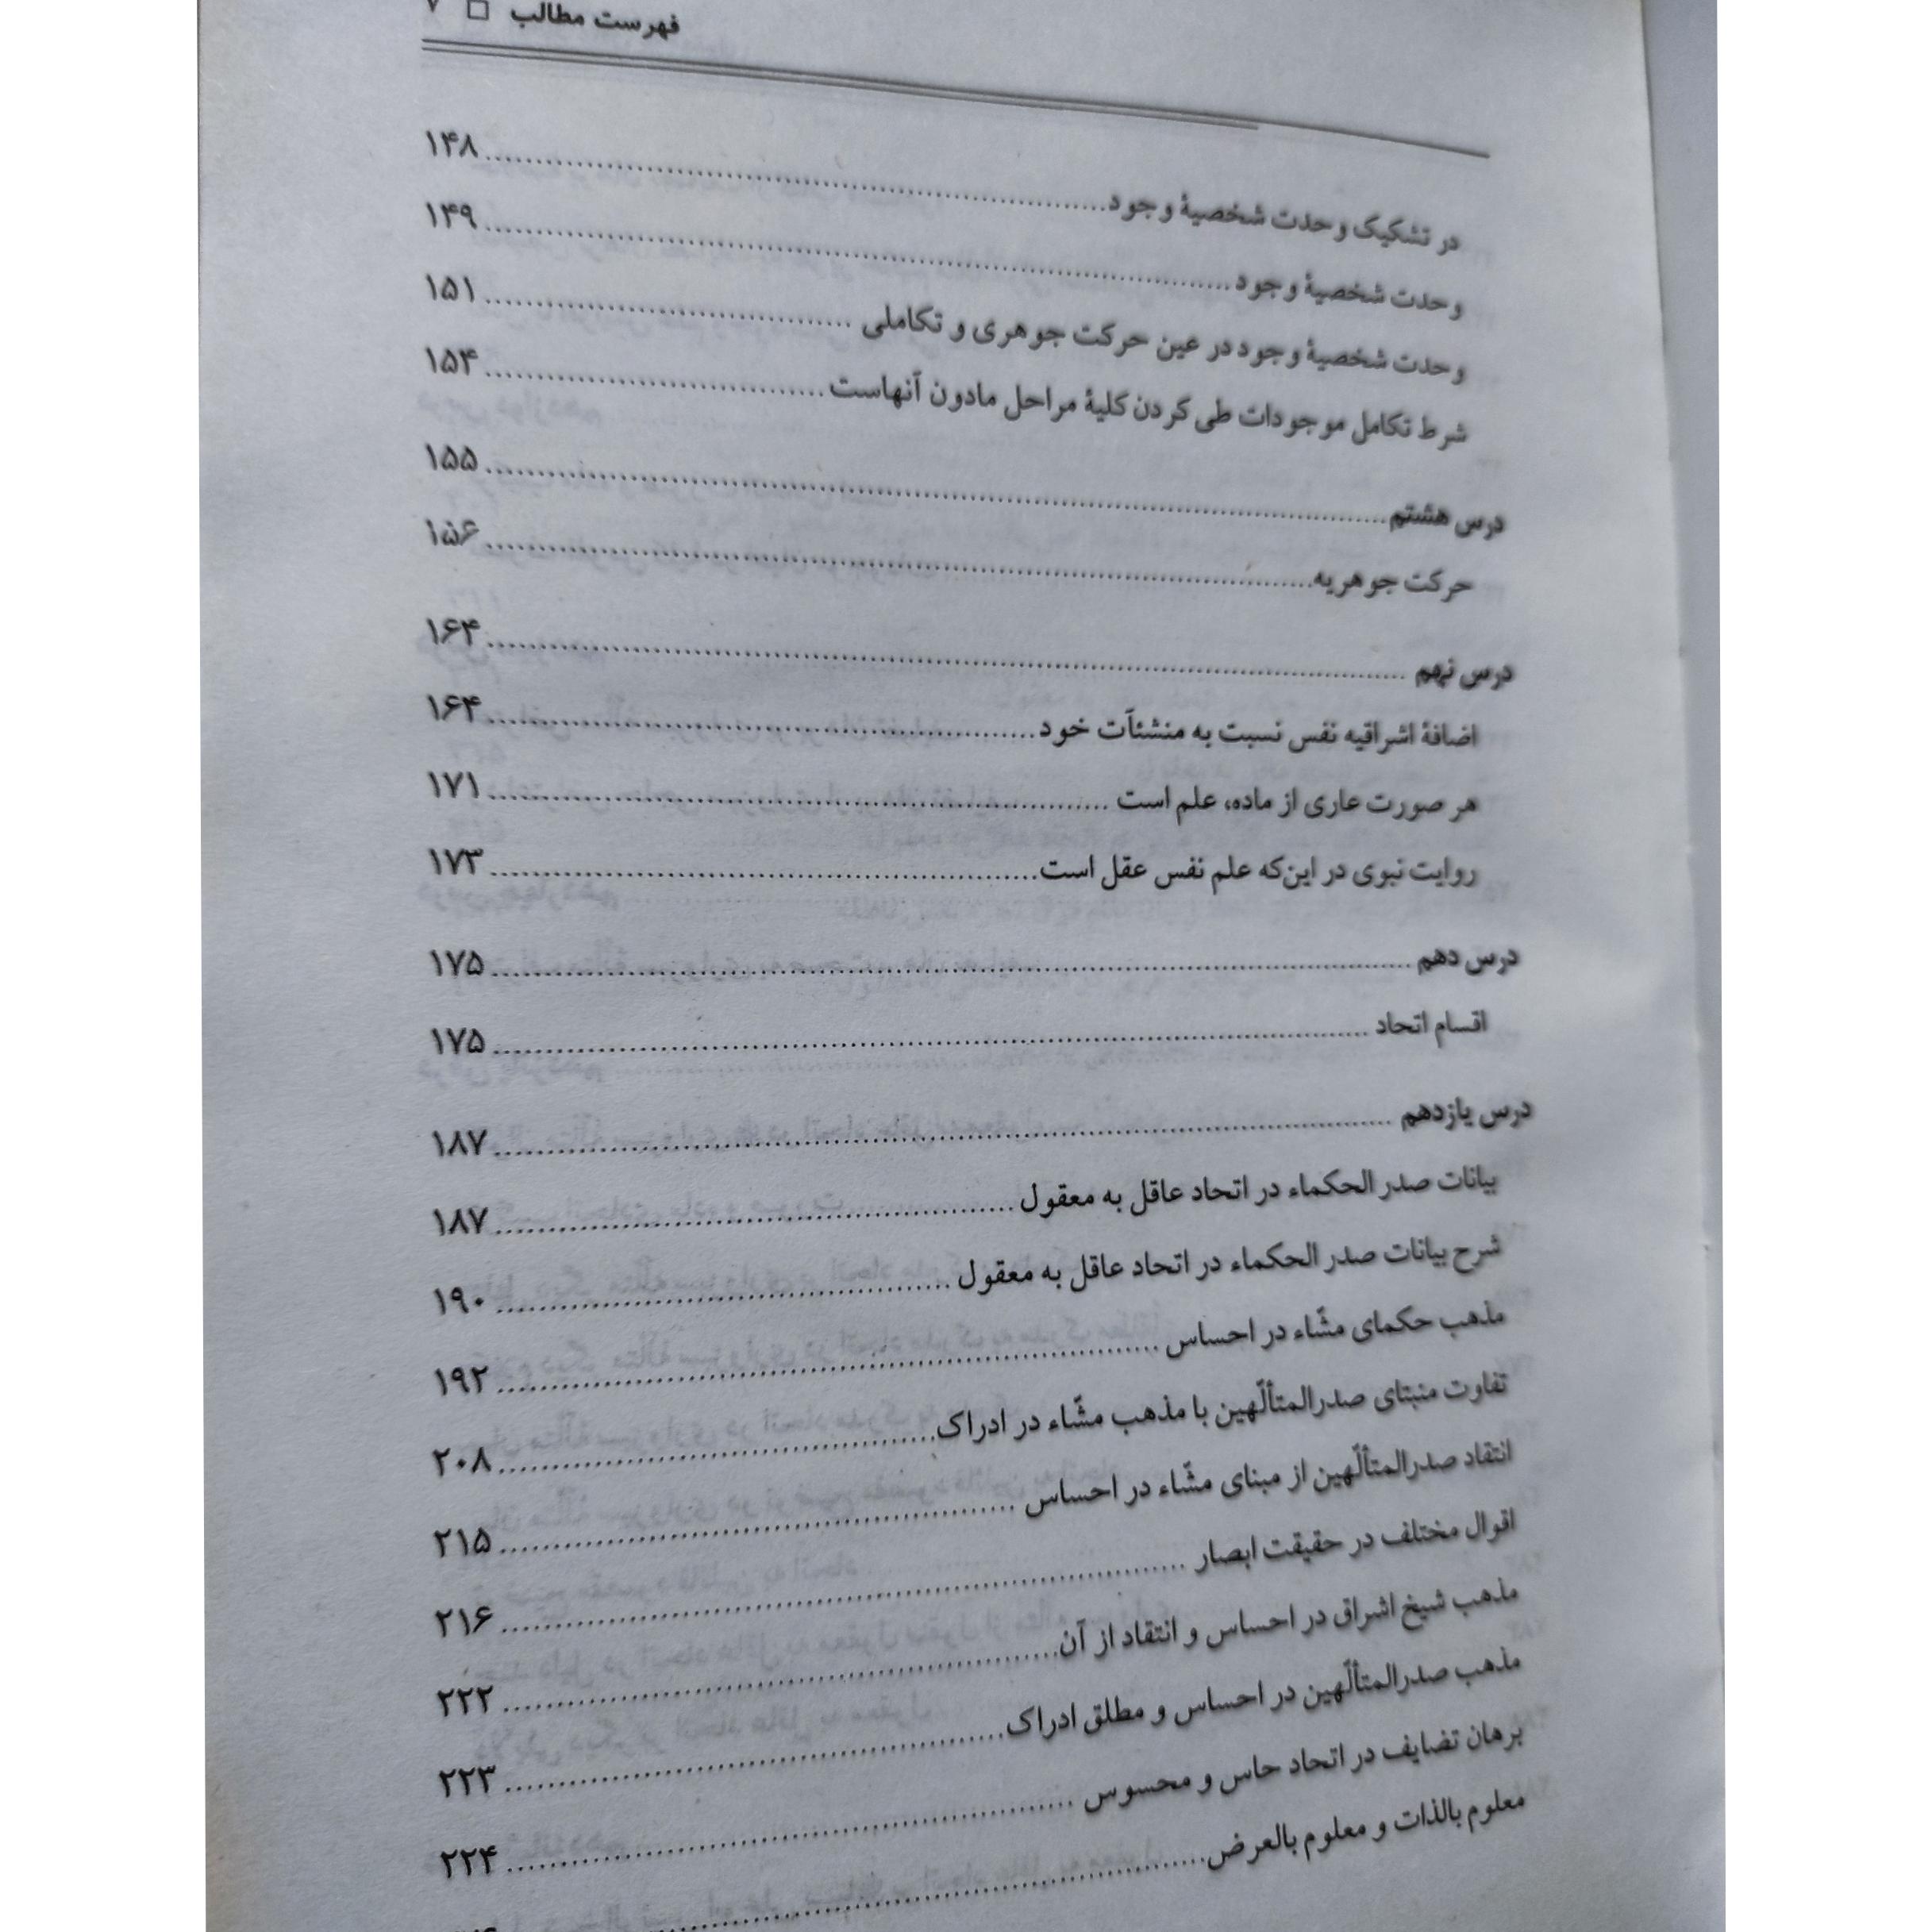 فهرست مطالب □ ۷
در تشکیک وحدت شخصیهٔ وجود ........ ۱۴۸
وحدت شخصیهٔ وجود ........ ۱۴۹
وحدت شخصیهٔ وجود در عین حرکت جوهری و تکاملی ........ ۱۵۱
شرط تکامل موجودات طی کردن کلیهٔ مراحل مادون آنهاست ........ ۱۵۴
درس هشتم ........ ۱۵۵
حرکت جوهریه ........ ۱۵۶
درس نهم ........ ۱۶۴
اضافهٔ اشراقیه نفس نسبت به منشئآت خود ........ ۱۶۴
هر صورت عاری از ماده، علم است ........ ۱۷۱
روایت نبوی در این‌که علم نفس عقل است ........ ۱۷۳
درس دهم ........ ۱۷۵
اقسام اتحاد ........ ۱۷۵
درس یازدهم ........ ۱۸۷
بیانات صدر الحکماء در اتحاد عاقل به معقول ........ ۱۸۷
شرح بیانات صدر الحکماء در اتحاد عاقل به معقول ........ ۱۹۰
مذهب حکمای مشّاء در احساس ........ ۱۹۲
تفاوت منبتای صدرالمتألّهین با مذهب مشّاء در ادراک ........ ۲۰۸
انتقاد صدرالمتألّهین از مبنای مشّاء در احساس ........ ۲۱۵
اقوال مختلف در حقیقت ابصار ........ ۲۱۶
مذهب شیخ اشراق در احساس و انتقاد از آن ........ ۲۲۲
مذهب صدرالمتألّهین در احساس و مطلق ادراک ........ ۲۲۳
برهان تضایف در اتحاد حاس و محسوس ........ ۲۲۴
معلوم بالذات و معلوم بالعرض ........